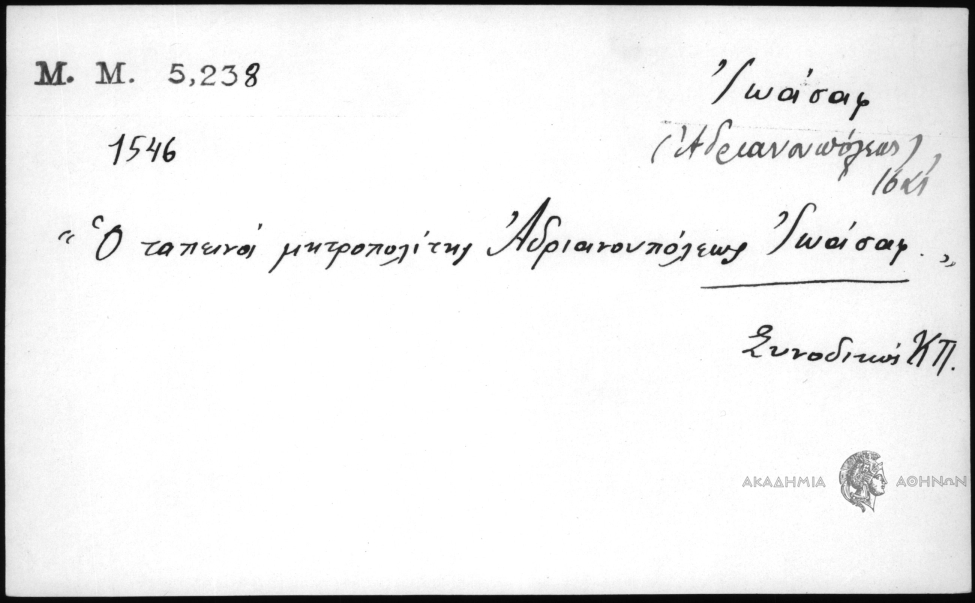 M. M. 5,238
Ἰωάσαφ
1546
(Ἀδριανουπόλεως)
16αι
"Ὁ ταπεινὸς μητροπολίτης Ἀδριανουπόλεως Ἰωάσαφ."
Συνοδικὸς ΚΠ.
ΑΚΑΔΗΜΙΑ ΑΘΗΝΩΝ